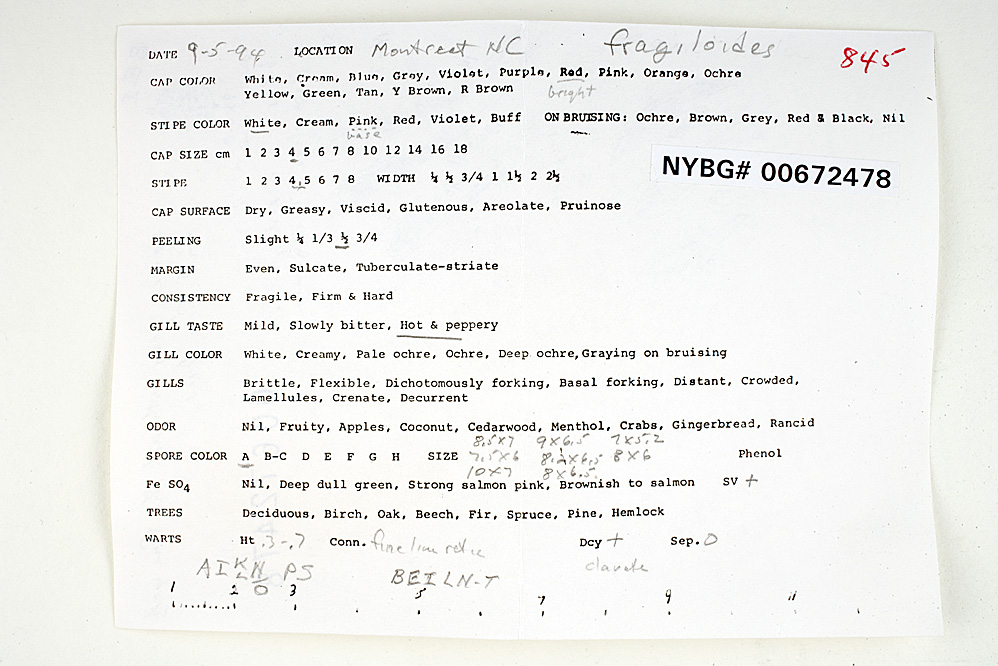 DATE 9-5-94 LOCATION Montreat NC fragiloides 845
CAP COLOR White, Cream, Blue, Grey, Violet, Purple, Red, Pink, Orange, Ochre
Yellow, Green, Tan, Y Brown, R Brown bright
STIPE COLOR White, Cream, Pink, Red, Violet, Buff ON BRUISING: Ochre, Brown, Grey, Red & Black, Nil
base
CAP SIZE cm 1 2 3 4 5 6 7 8 10 12 14 16 18
NYBG# 00672478
STIPE 1 2 3 4,5 6 7 8 WIDTH ¼ ½ 3/4 1 1½ 2 2½
CAP SURFACE Dry, Greasy, Viscid, Glutenous, Areolate, Pruinose
PEELING Slight ¼ 1/3 ½ 3/4
MARGIN Even, Sulcate, Tuberculate-striate
CONSISTENCY Fragile, Firm & Hard
GILL TASTE Mild, Slowly bitter, Hot & peppery
GILL COLOR White, Creamy, Pale ochre, Ochre, Deep ochre, Graying on bruising
GILLS Brittle, Flexible, Dichotomously forking, Basal forking, Distant, Crowded,
Lamellules, Crenate, Decurrent
ODOR Nil, Fruity, Apples, Coconut, Cedarwood, Menthol, Crabs, Gingerbread, Rancid
8.5x7 9x6.5 7x5.2
SPORE COLOR A B-C D E F G H SIZE 7.5x6 8.2x6.5 8x6 Phenol
10x7 8x6.5
Fe SO4 Nil, Deep dull green, Strong salmon pink, Brownish to salmon SV +
TREES Deciduous, Birch, Oak, Beech, Fir, Spruce, Pine, Hemlock
WARTS Ht .3-.7 Conn. fine line Dcy + Sep. 0
clavate
PS BEILN-T
1 2 0 3 5 7 9 11